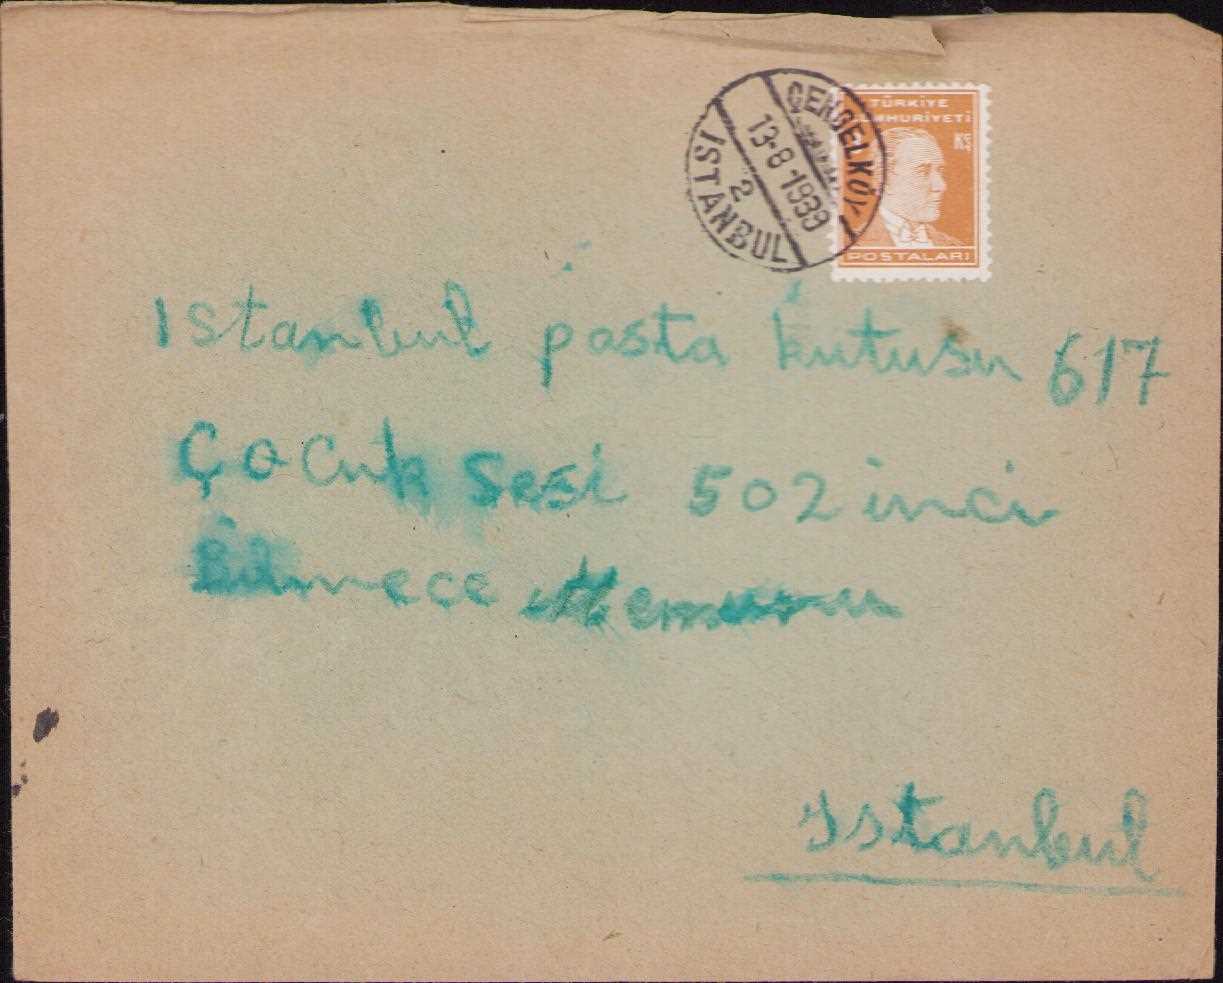 ÇENGELKÖY
13-8-1939
2
İSTANBUL
TÜRKİYE
CUMHURİYETİ
POSTALARI
Istanbul posta kutusu 617
Çocuk Sesi 502 inci
Bilmece Memuru
Istanbul